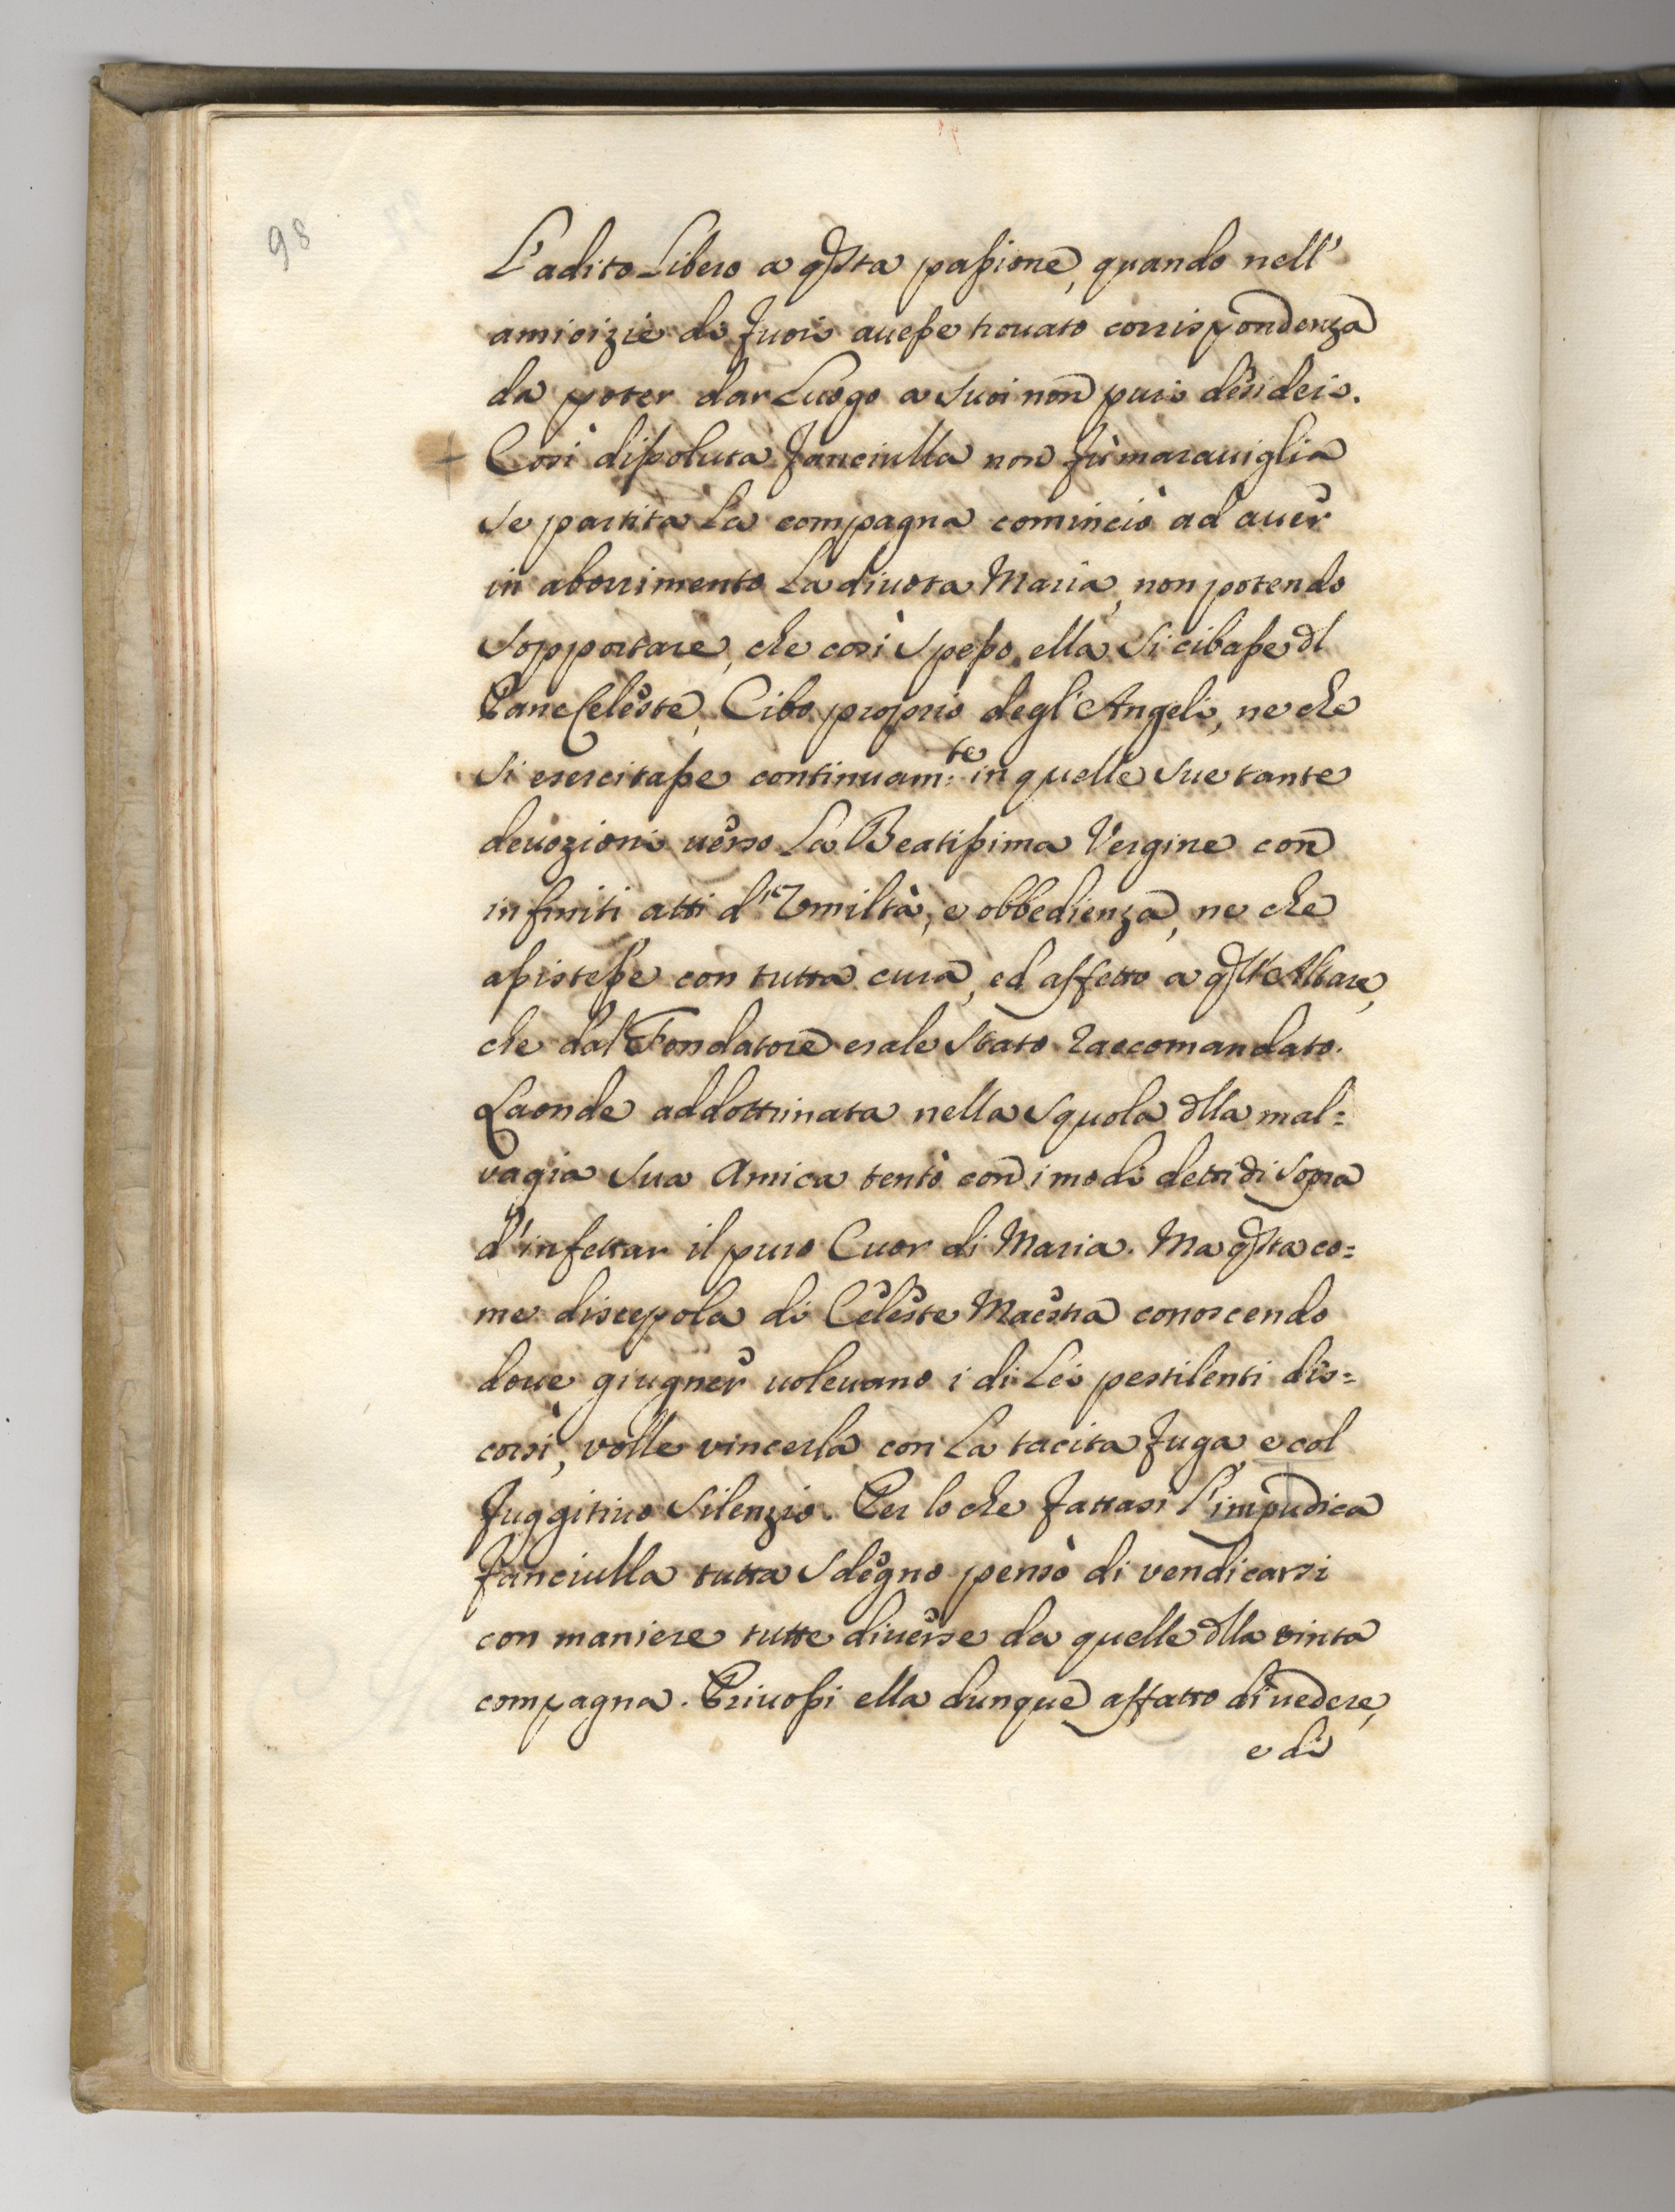 98
L'adito Libero a q̃sta passione, quando nell'
amicizie di fuori auesse trouato corrispondenza
da poter dar Luogo a suoi non puri desideri.
+ Così dissoluta fanciulla non fù marauiglia
se partita La compagna cominciò ad auer
in aborrimento La diuota Maria, non potendo
sopportare, che così spesso ella si cibasse dl
Pane Celeste, Cibo proprio degl'Angeli, ne che
si esercitasse continuam:te in quelle sue tante
deuozioni uerso La Beatissima Vergine con
infiniti atti d'Vmiltà, e obbedienza, ne che
assistesse con tutta cura, ed affetto a q̃ll'Altare,
che dal Fondatore erale stato raccomandato.
Laonde addottrinata nella squola dlla mal=
vagia sua Amica tentò con i modi detti di sopra
d'infettar il puro Cuor di Maria. Ma q̃sta co=
me discepola di Celeste Maestra conoscendo
doue giugner uoleuano i di Lei pestilenti dis=
corsi, volle vincerla con La tacita fuga e col
fuggitiuo silenzio. Per lo che fattasi l'impudica
fanciulla tutta sdegno pensò di vendicarsi
con maniere tutte diuerse da quelle dlla vinta
compagna. Priuossi ella dunque affatto di uedere,
e di